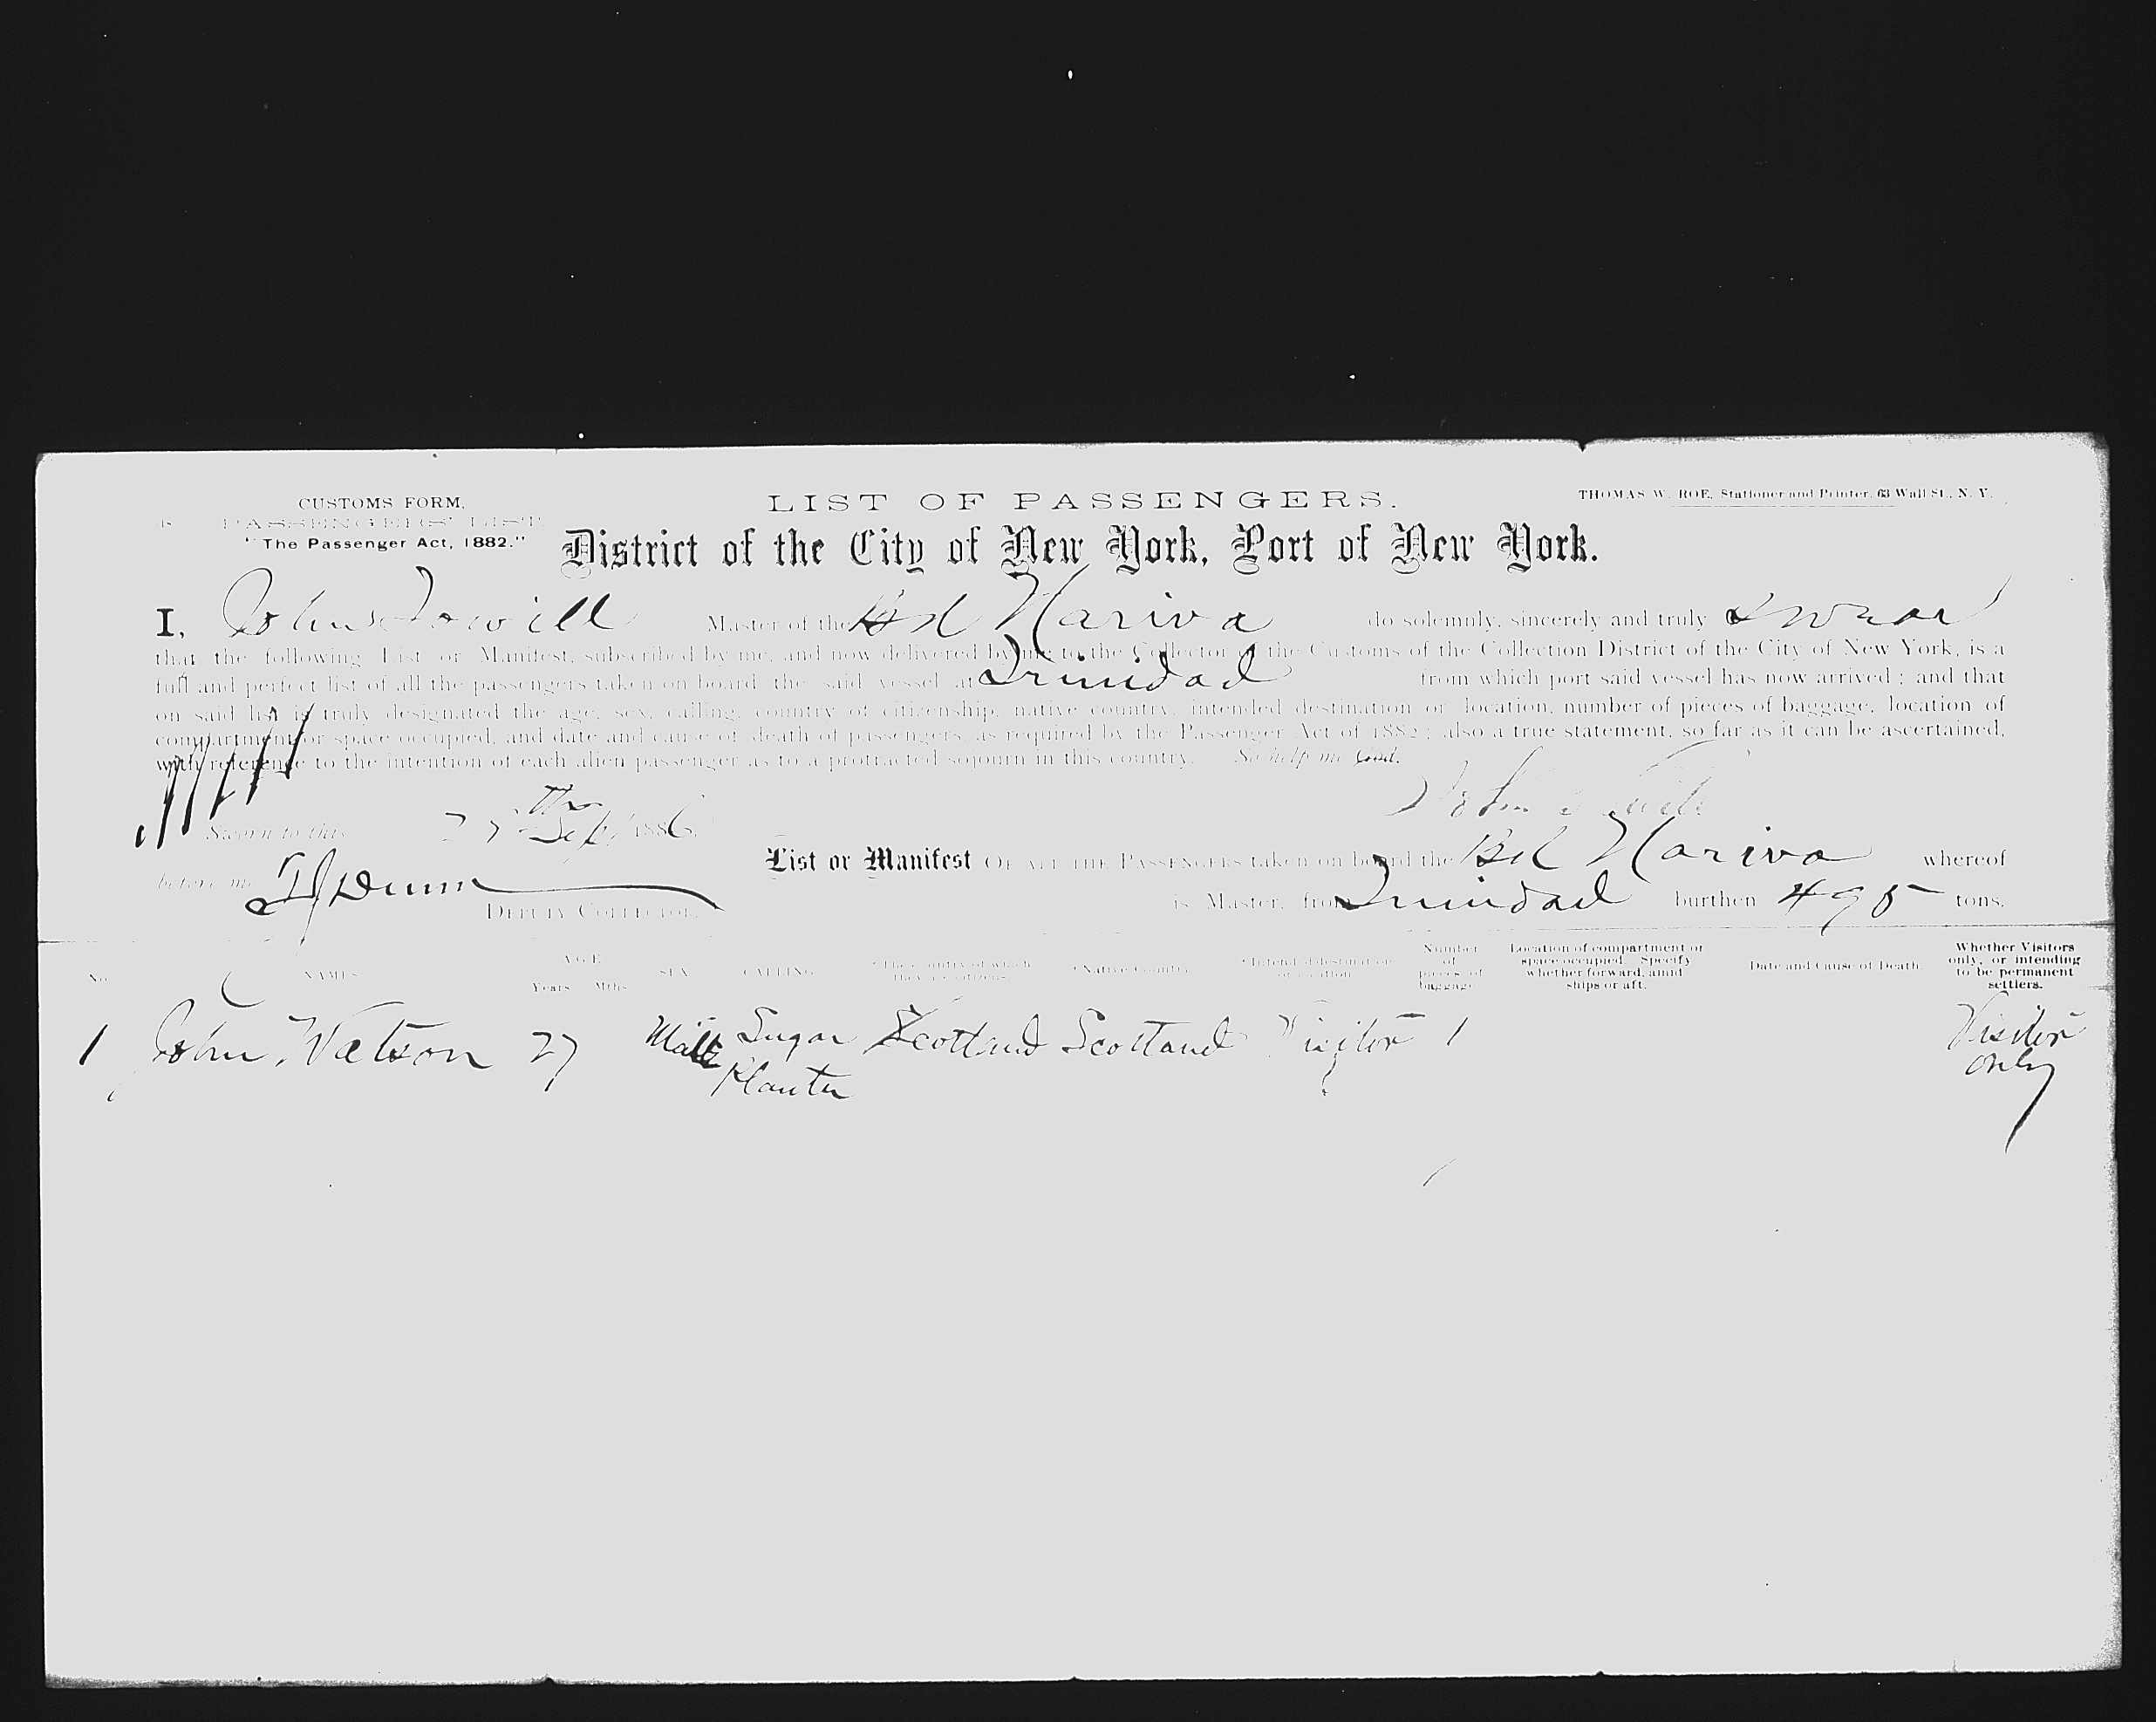 CUSTOMS FORM,
PASSENGERS' LIST
"The Passenger Act, 1882."
LIST OF PASSENGERS.
THOMAS W. ROE, Stationer and Printer, 63 Wall St., N. Y.
District of the City of New York, Port of New York.
I, John Master of the Nariva do solemnly, sincerely and truly swear
that the following List or Manifest, subscribed by me, and now delivered by me to the Collector of the Customs of the Collection District of the City of New York, is a
full and perfect list of all the passengers taken on board the said vessel at Trinidad from which port said vessel has now arrived; and that
on said list is truly designated the age, sex, calling, country of citizenship, native country, intended destination or location, number of pieces of baggage, location of
compartment or space occupied, and date and cause of death of passengers, as required by the Passenger Act of 1882; also a true statement, so far as it can be ascertained,
with reference to the intention of each alien passenger as to a protracted sojourn in this country. So help me God.
John
Sworn to this 27th Sept 1886
List or Manifest OF ALL THE PASSENGERS taken on board the Nariva whereof
before me Dunn
is Master, from Trinidad burthen 495 tons.
DEPUTY COLLECTOR.
No. NAMES AGE Years Mths SEX CALLING The country of which they are citizens Native Country Intended destination or location Number of pieces of baggage Location of compartment or space occupied. Specify whether forward, amidships or aft. Date and Cause of Death Whether Visitors only, or intending to be permanent settlers.
1 John Watson 27 Male Sugar Planter Scotland Scotland Visitor 1 Visitor only